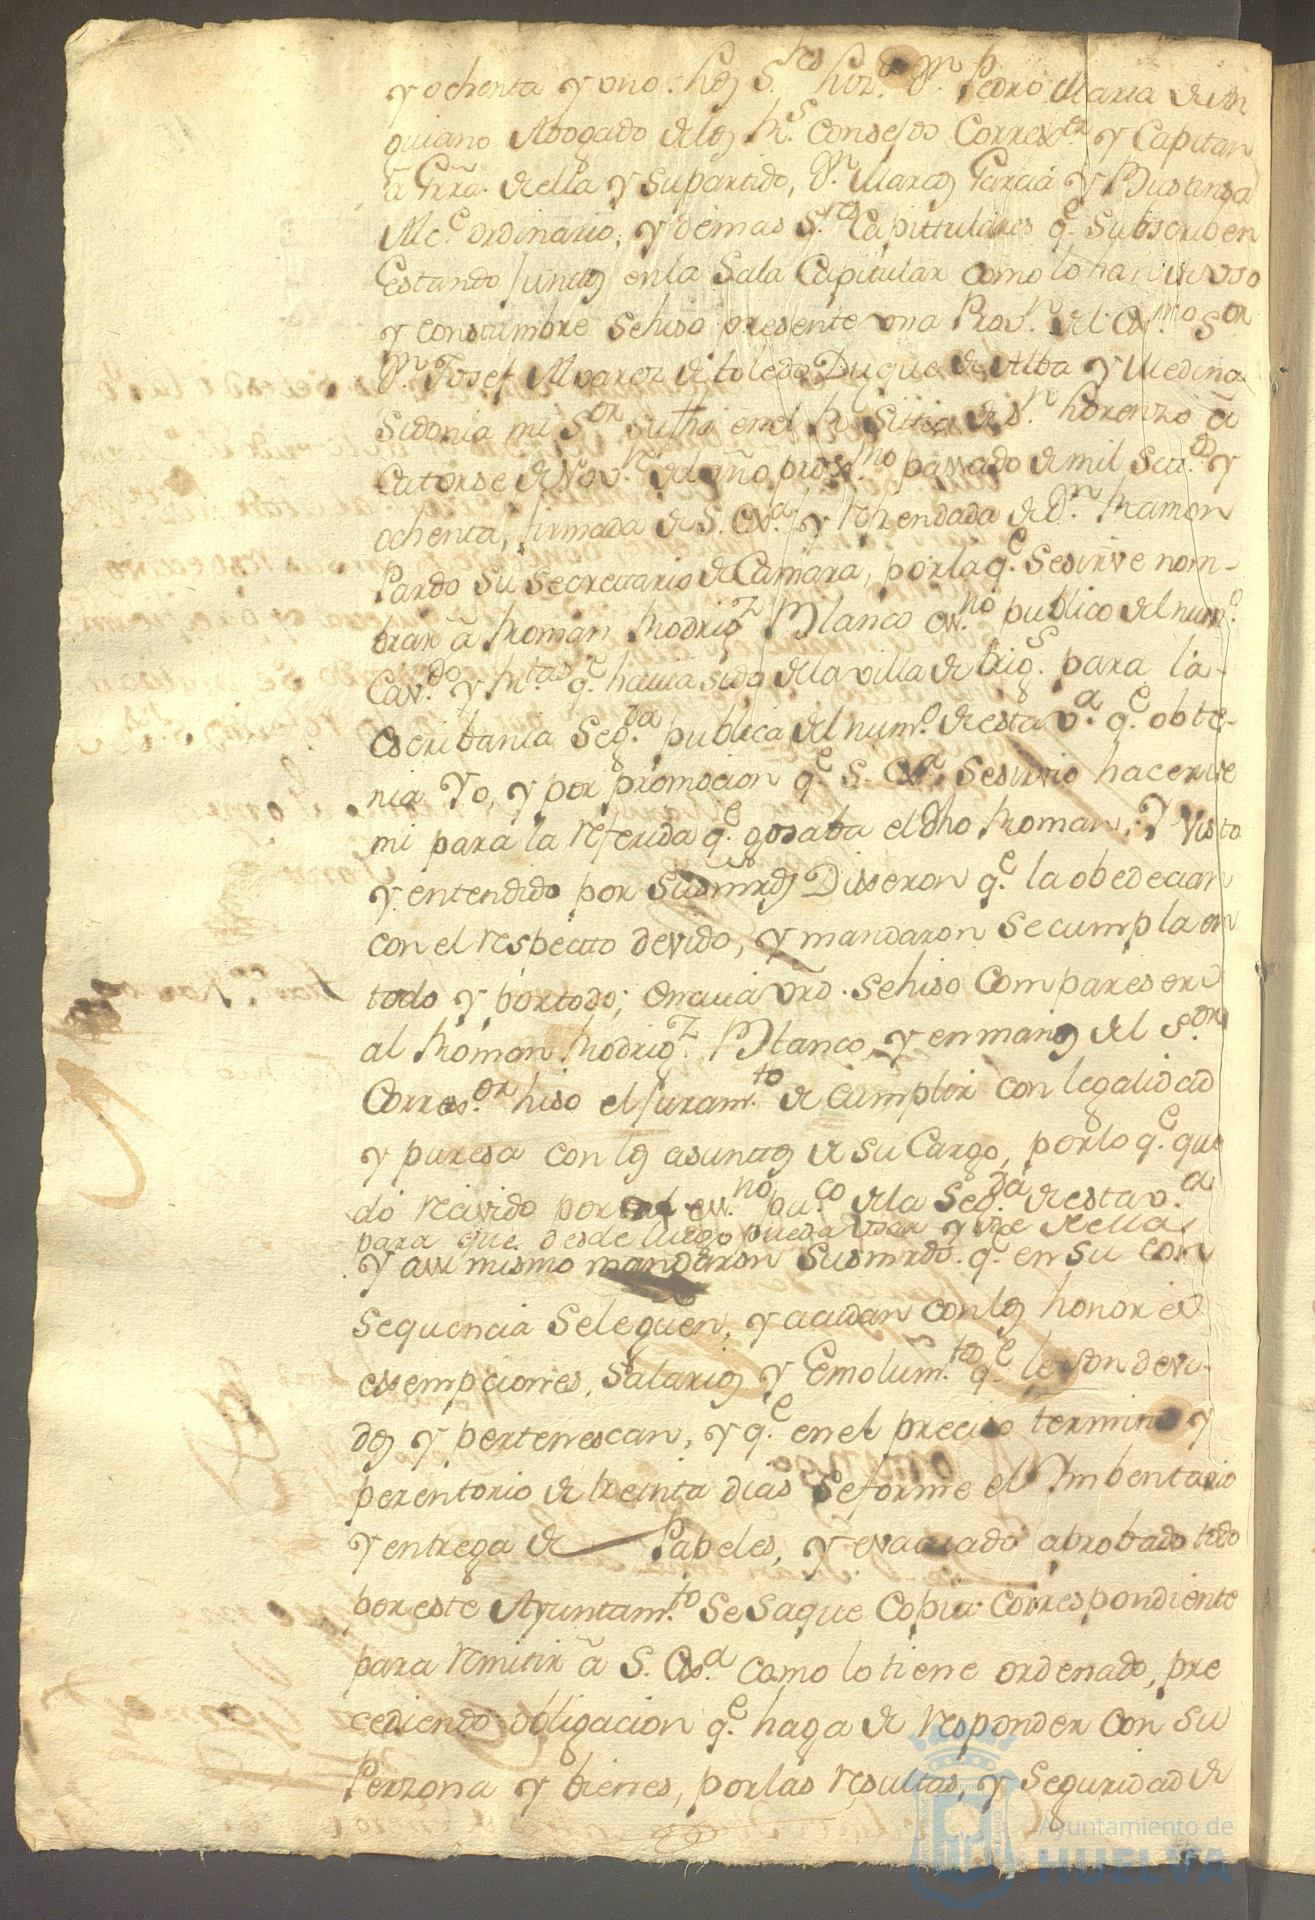 y ochenta y uno. los S.res Liz.do D.n Pedro Maria de An
guiano Abogado de los R.s Consejos Correx.or y Capitan
â Grrâ. de ella y su partido, D.n Marcos Garcia y Bustensa
Alc.e ordinario, y demas S.res Capittulares q.e subscriben
Estando Juntos en la Sala Capitular como lo han de uso
y constumbre se hiso presente una Prov.n del Ex.mo S.or
D.n Josef Alvarez de toledo Duque de Alba y Medina
Sidonia mi S.or su fha en el R.l Sitio de S.n Lorenzo â
Catorse de Nov.re del año prox.mo passado de mil Setz.os y
ochenta, firmada de S. Ex.a y refrendada de D.n Ramon
Pardo su Secretario de Camara, por la q.e se sirve nom-
brar â Roman Rodrig.z Blanco ess.no publico del num.o
Cav.do y R.tas q.e havia sido de la villa de trig.s para la
escribania Seg.da publica del num.o de esta v.a q.e obte-
nia Yo, y por promocion q.e S. Ex.a se sirvio hacerme
mi para la referida q.e gosaba el dho Roman; Y visto
y entendido por Susmrds Dixeron q.e la obedecian
con el respecto devido, y mandaron se cumpla en
todo y por todo; en cuia vrd. se hiso compareser
al Roman Rodrig.z Blanco, y en manos del S.or
Corres.or hiso el Juram.to de cumplir con legalidad
y puresa con los asuntos de su Cargo, por lo q.e que
dó recivido por tal ess.no pu.co de la Seg.da de esta v.a
para que desde luego pueda usar y use de ella
y assi mismo mandaron Susmrds. q.e en su con
sequencia se le guen, y acudan con los honores
essempciones, Salarios y Emolum.tos q.e le son devi-
dos y pertenescan, y q.e en el preciso termino y
perentorio de treinta dias se forme el Imbentario
y entrega de Papeles, y evacuado aprobado todo
por este Ayuntam.to se saque Copia correspondiente
para remitir â S. Ex.a como lo tiene ordenado, pre
cediendo obligacion q.e haga de responder con su
Perzona y bienes, por las resultas, y Seguridad de
Ayuntamiento de
HUELVA